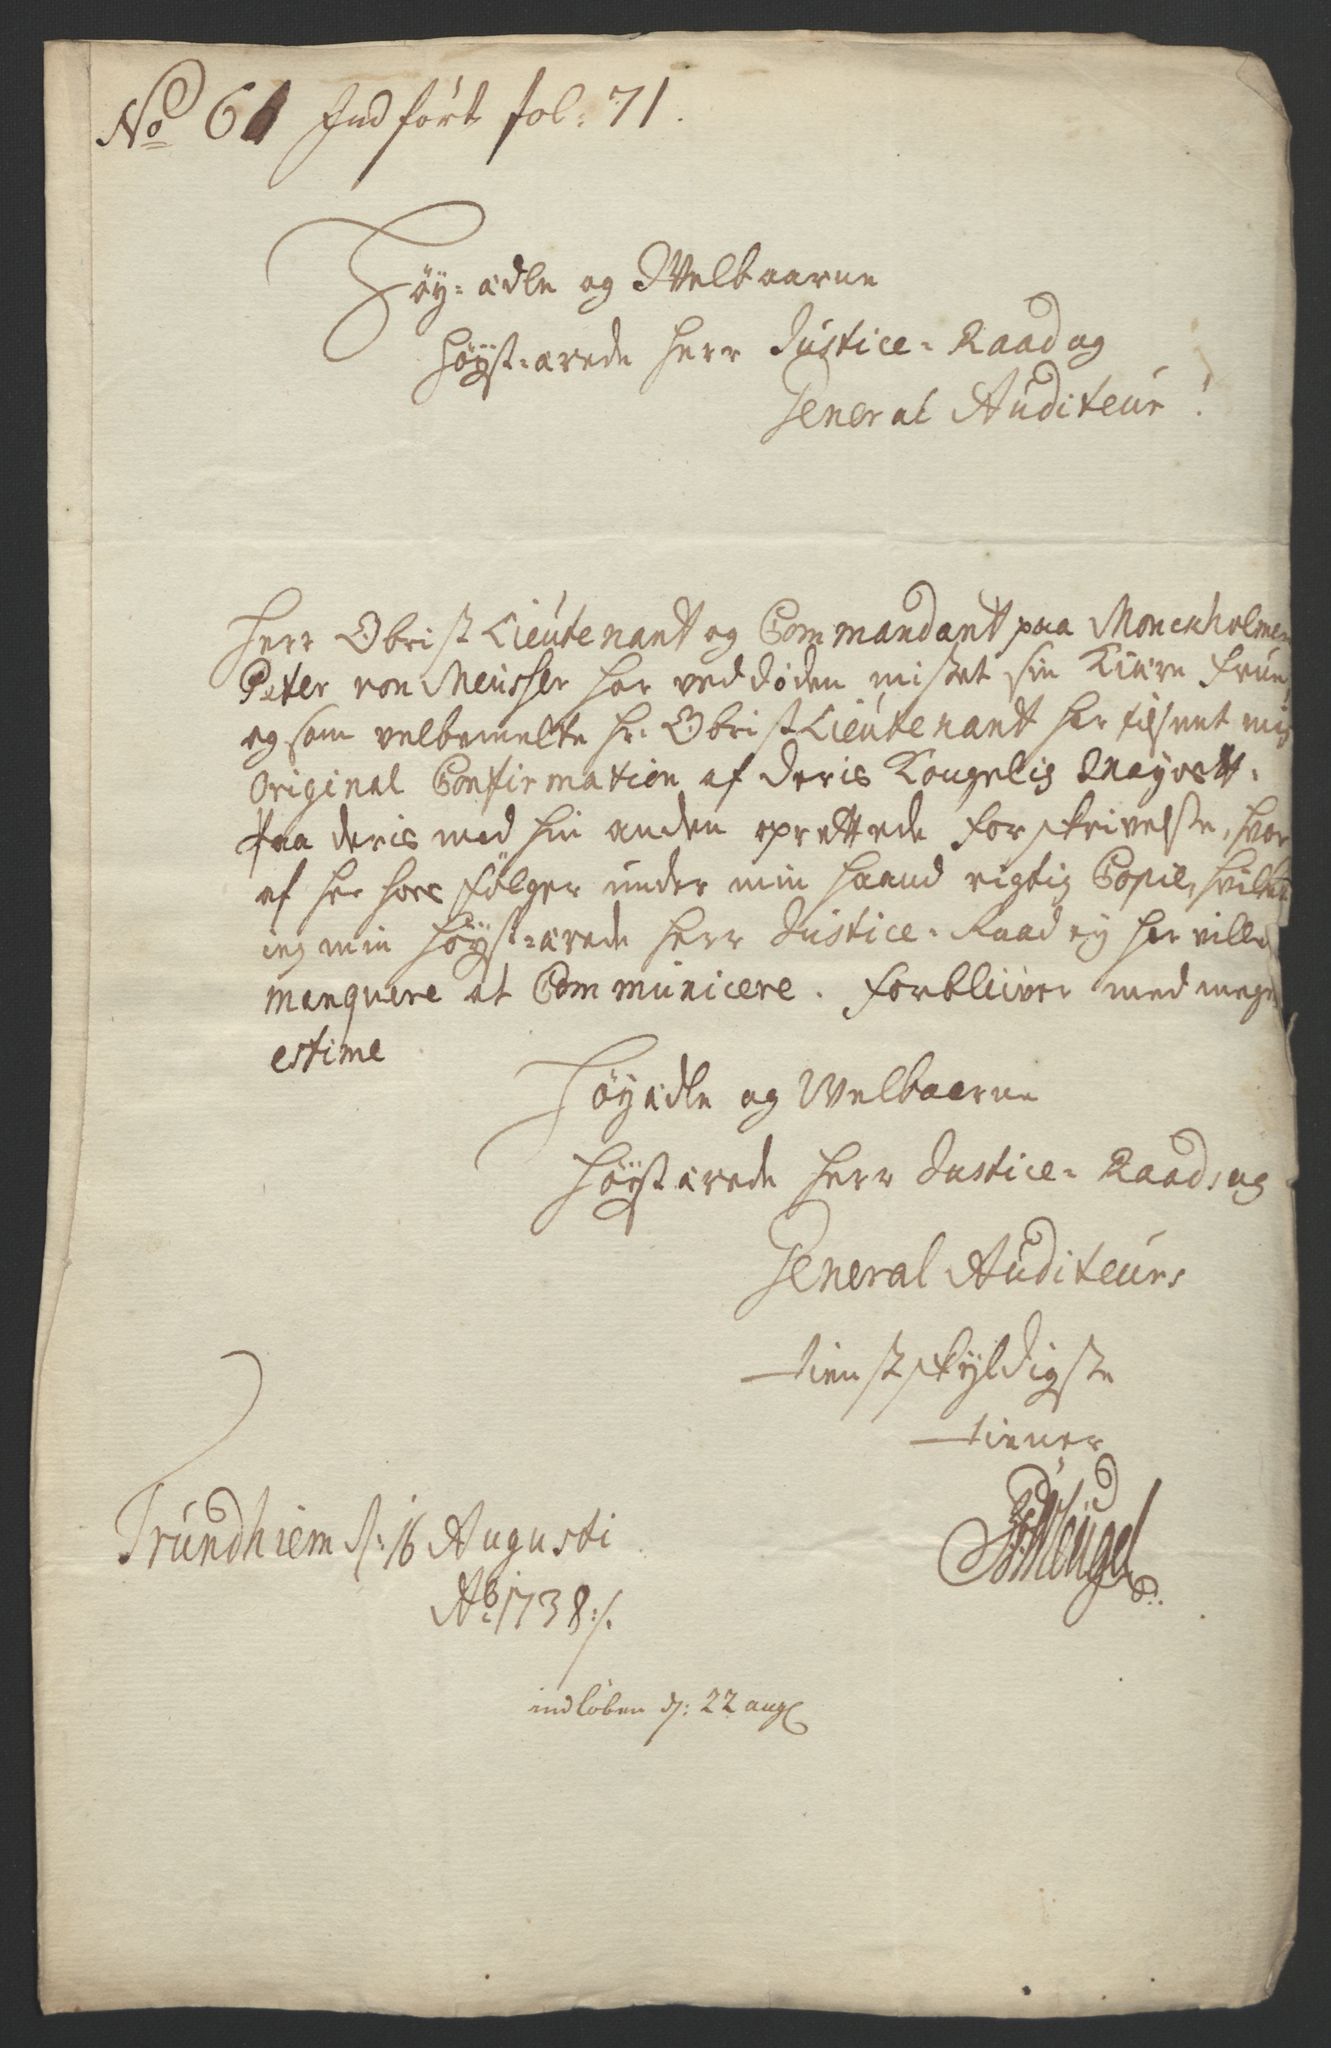 No 61 Indført fol: 71.
Høy-ædle og Welbaarne
Høyst-ærede Herr Justice-Raad og
General Auditeur!
Herr Obrist Lieutenant og Commandant paa Monckholmen
Peter von Meusser har ved døden mistet sin Kiære Frue,
og som velbemelte Hr. Obrist Lieutenant har tilsent mig
Original Confirmation af Deris Kongelig Mayestt.
Paa deris med hin anden oprettede Forskrivelse, hvor
af her hos følger under min Haand rigtig Copie, hvilket
ieg min Høyst-ærede Herr Justice-Raad ey har ville
manquere at Communicere. Forbliver med megen
estime
Høyædle og Welbaarne
Høystærede Herr Justice-Raads og
General Auditeurs
tienstskyldigste
tiener
Trundhiem d: 16 Augusti
Ao: 1738 :/.
indløben d: 22 aug